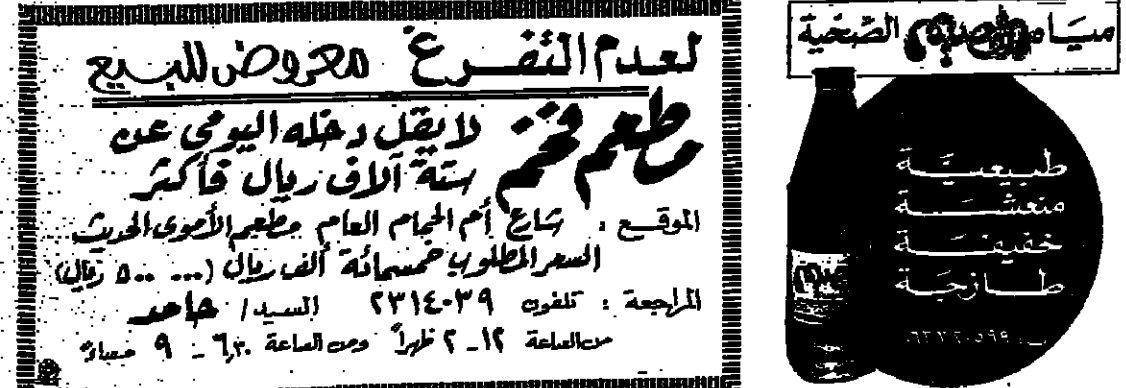 لعدم التفرغ معروض للبيع
مطعم فخم
لا يقل دخله اليومي عن
ستة آلاف ريال فأكثر
الموقع : شارع أم الحمام العام مطعم الأموي الحديث
السعر المطلوب خمسمائة ألف ريال (٥٠٠٠٠٠ ريال)
المراجعة : تلفون ٢٣١٤٠٣٩ السيد / حامد
من الساعة ١٢ - ٢ ظهراً ومن الساعة ٦,٣٠ - ٩ مساءً
الصحية
طبيعية
منعشة
خفيفة
طازجة